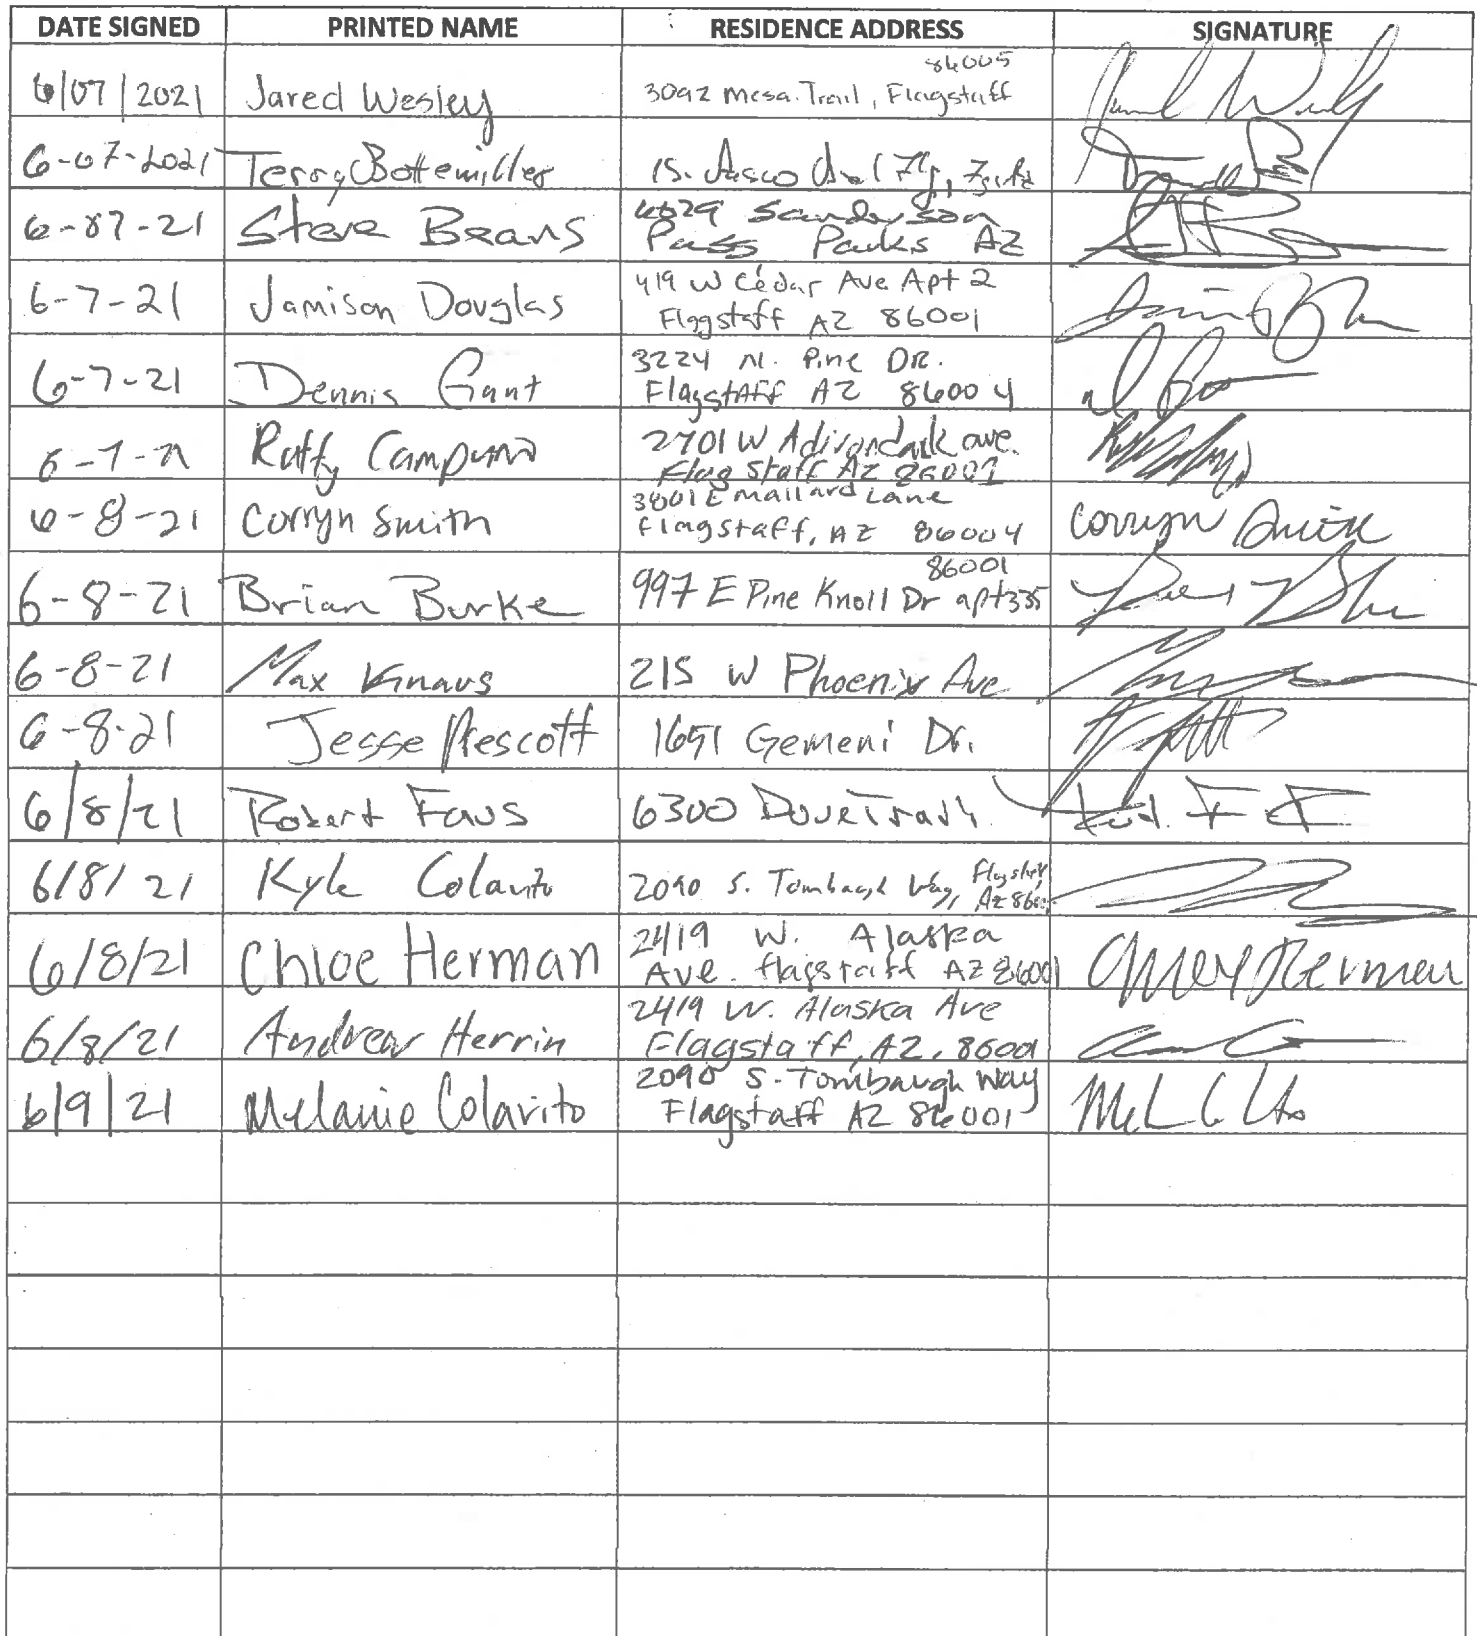 DATE SIGNED PRINTED NAME RESIDENCE ADDRESS SIGNATURE
86005
6/07/2021 Jared Wesley 3092 Mesa Trail, Flagstaff
6-07-2021 Terry Bottemiller
6-07-21 Steve Beans Sanderson
Pass Parks AZ
6-7-21 Jamison Douglas 419 W Cedar Ave Apt 2
Flagstaff AZ 86001
6-7-21 Dennis Gant 3224 N. Pine DR.
Flagstaff AZ 86004
2701 W Adirondack ave.
Flag Staff AZ 86001
6-8-21 Corryn Smith 3801 E Mallard Lane
Flagstaff, AZ 86004 Corryn Smith
86001
6-8-21 Brian Burke 997 E Pine Knoll Dr apt 335
6-8-21 Max Knaus 215 W Phoenix Ave
6-8-21 Jesse Prescott 1651 Gemeni Dr.
6/8/21 Robert Faus 6300 Dove Trail
6/8/21 Kyle Colavito 2090 S. Tombaugh Way, Flagstaff
AZ
6/8/21 Chloe Herman 2419 W. Alaska
Ave. flagstaff AZ 86001 Chloe Herman
6/8/21 Andrew Herrin 2419 W. Alaska Ave
Flagstaff, AZ, 86001
6/9/21 Melanie Colavito 2090 S. Tombaugh Way
Flagstaff AZ 86001